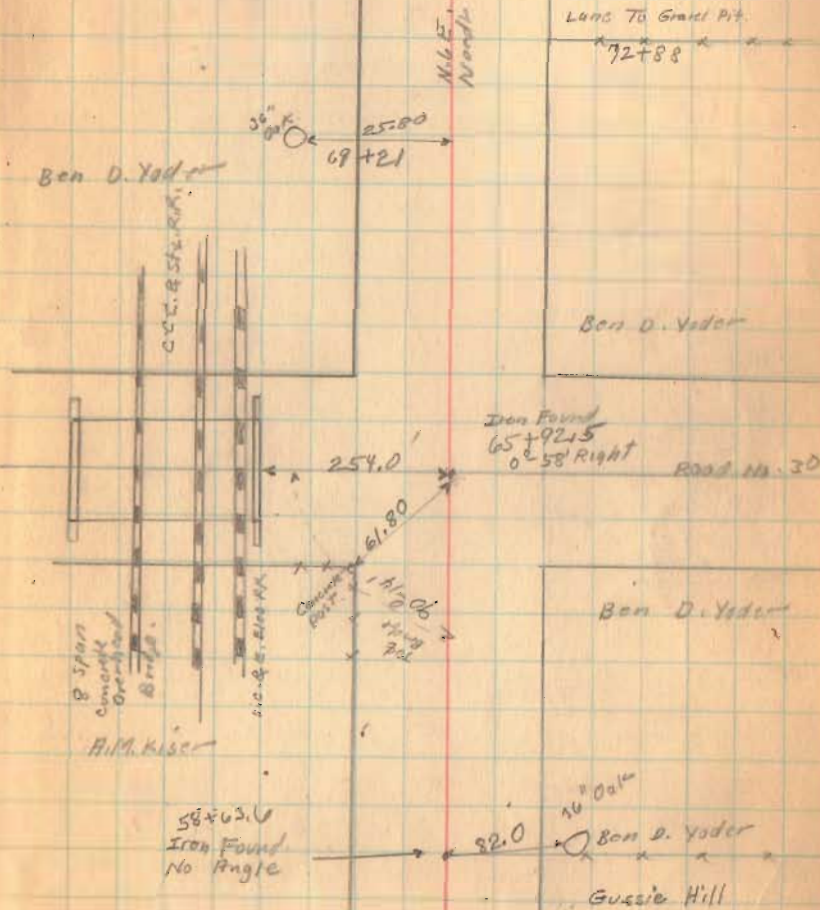 Lane To Gravel Pit.
72+88
36" Oak
25.80
69+21
Ben D. Yoder
C.C.C. & St. L. R.R.
Ben D. Yoder
Iron Found
65+92.5
0°-58' Right
254.0'
Road No. 30
61.80
Concrete
Post.
Ben D. Yoder
8 Span
Concrete
Overhead
Bridge.
A.M. Kiser
36" Oak
58+63.6
Iron Found
No Angle
82.0'
Ben D. Yoder
Gussie Hill